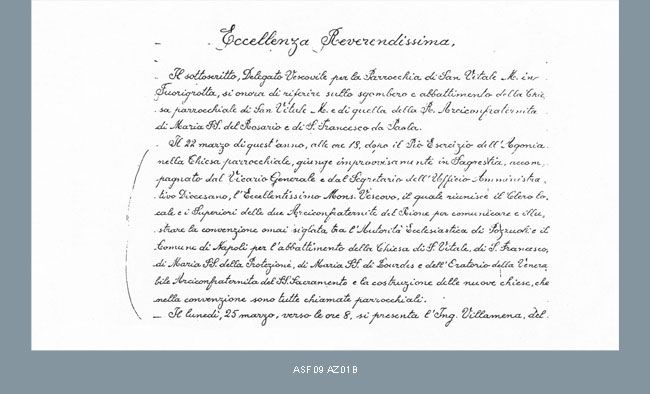 Eccellenza Reverendissima,
Il sottoscritto, Delegato Vescovile per la Parrocchia di San Vitale M. in
Fuorigrotta, si onora di riferire sullo sgombero e abbattimento della Chie
sa parrocchiale di San Vitale M. e di quella della R. Arciconfraternita
di Maria SS. del Rosario e di S. Francesco da Paola.
Il 22 marzo di quest'anno, alle ore 18, dopo il Pio Esercizio dell'Agonia
nella Chiesa parrocchiale, giunge improvvisamente in Sagrestia, accom,
pagnato dal Vicario Generale e dal Segretario dell'Ufficio Amministra,
tivo Diocesano, l'Eccellentissimo Mons. Vescovo, il quale riunisce il Clero lo,
cale e i Superiori delle due Arciconfraternite del Rione per comunicare e illu,
strare la convenzione omai siglata tra l'Autorità Ecclesiastica di Pozzuoli e il
Comune di Napoli per l'abbattimento della Chiesa di S. Vitale, di S. Francesco,
di Maria SS. della Protezione, di Maria SS. di Lourdes e dell'Oratorio della Venera
bile Arciconfraternita del SS. Sacramento e la costruzione delle nuove chiese, che
nella convenzione sono tutte chiamate parrocchiali.
Il lunedì, 25 marzo, verso le ore 8, si presenta l'Ing. Villamena, del
ASF 09 AZ01B